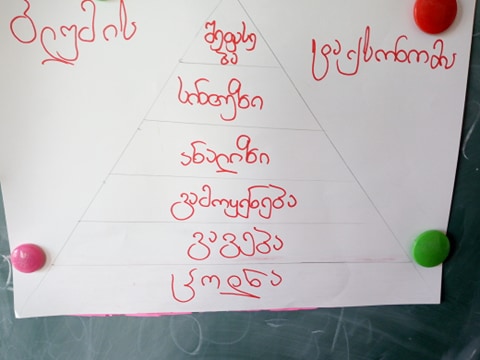 ბლუმის
ტაქსონომია
შეფასე
ბა
სინთეზი
ანალიზი
გამოყენება
გაგება
ცოდნა